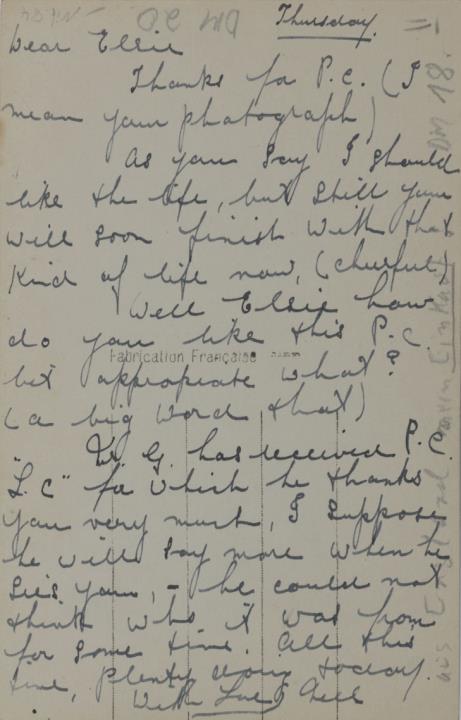 Thursday.
DM 20
Dear Elsie
Thanks fo P.C. (I
mean your photograph)
As you say I should
like the life, but still your
will soon finish with that
kind of life now, (cheerful)
Well Elsie how
do you like this P.C.
Fabrication Française
bit appropiate what?
(a big word that)
W. G. has received P.C.
"L.C" fo which he thanks
you very much, I suppose
he will say more when he
sees your, - he could not
think who it was from
for some time. All this
time, plenty doing today.
With Love
DM 18.
aus England